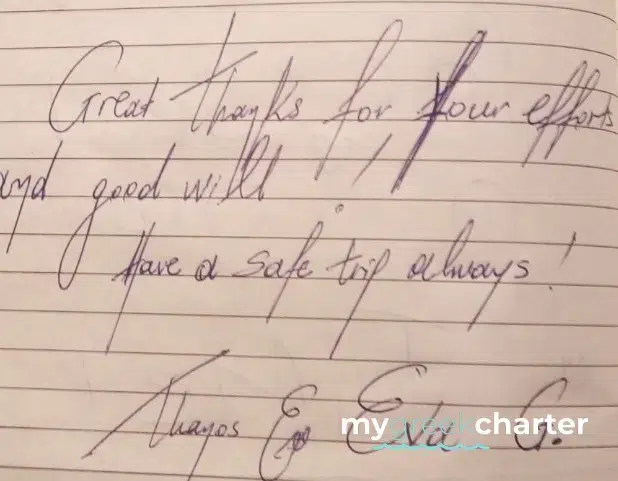 Great thanks for your efforts
and good will!
Have a safe trip always!
Thanos & Eva G.
my charter